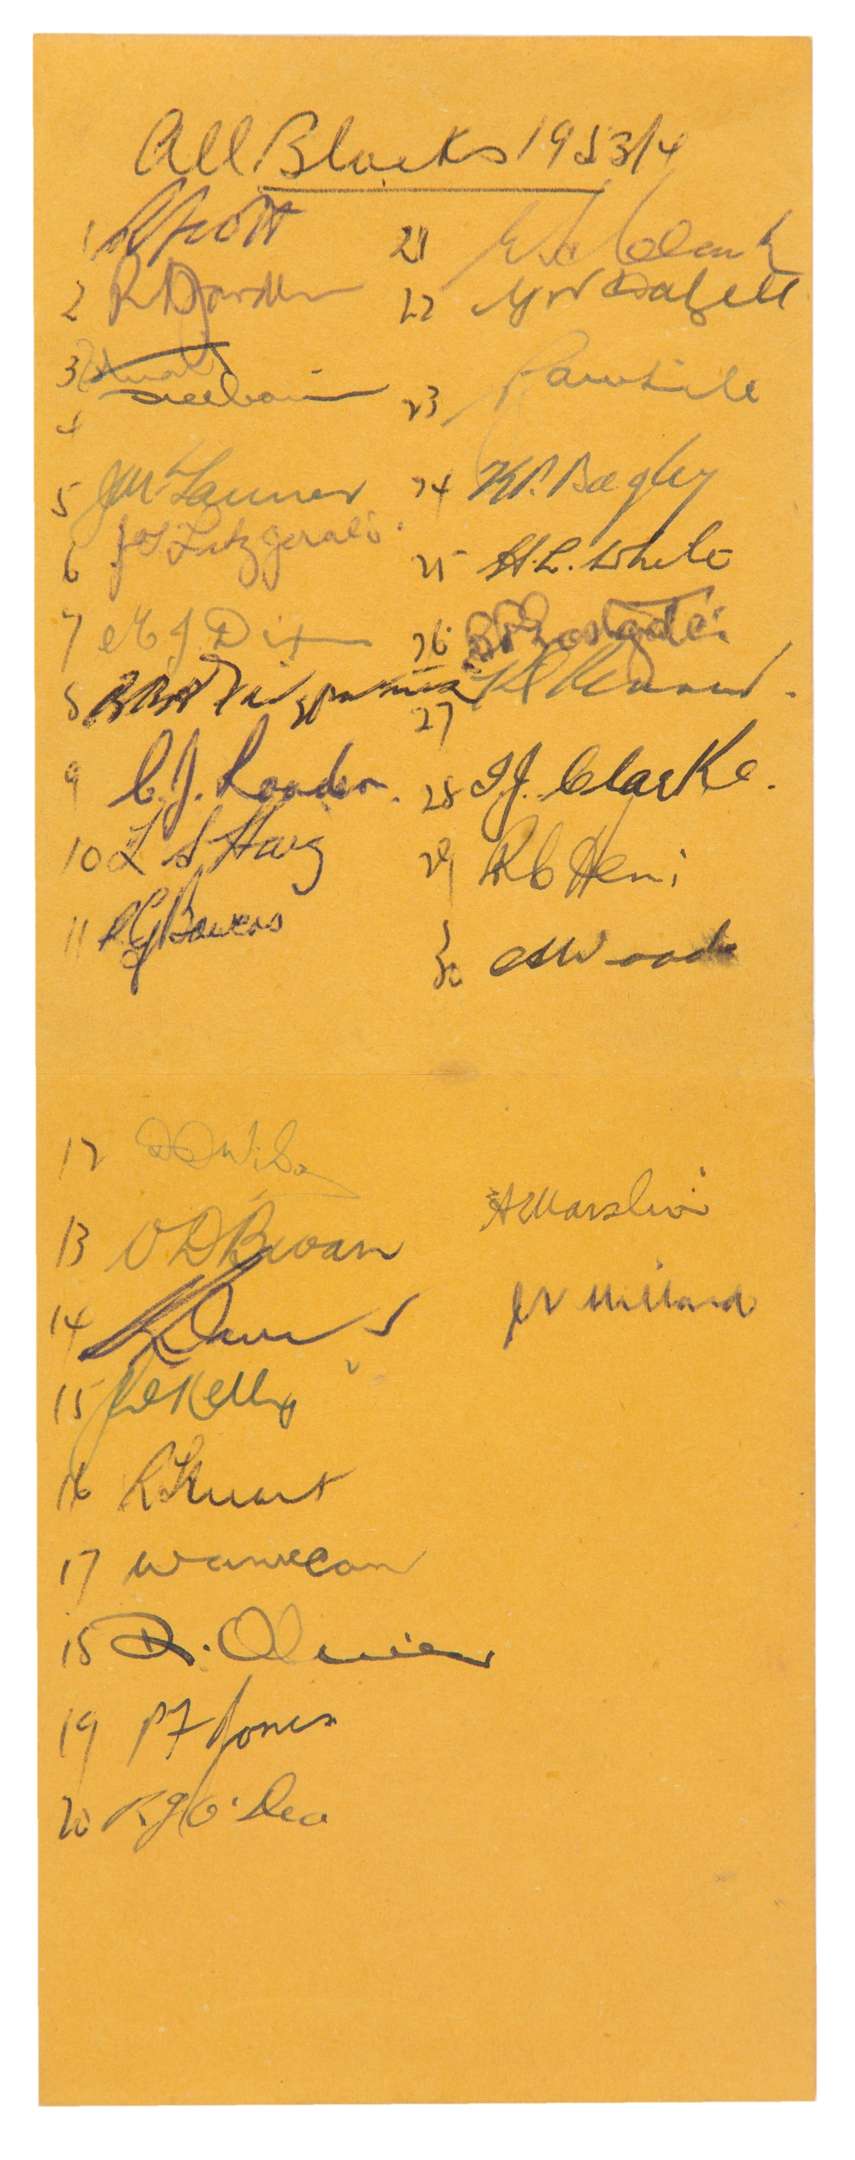 All Blacks 1953/4
1 R Scott
2 R A Jarden
3
4
5 J M Tanner
6 J T Fitzgerald
7 M J Dixon
8 B B J Fitzpatrick
9 C. J. Loader.
10 L S Haig
11 R G Bowers
12 D D Wilson
13 V D Bevan
14 K Davis
15 J W Kelly
16 R Stuart
17 W McCaw
18 D. Oliver
19 P F Jones
20 B J O'Dea
21 Clark
22 G N Dalzell
23 R A White
24 K P. Bagley
25 H. L. White
26 B P Eastgate
27
28 I. J. Clarke.
29 R C Hemi
30 C A Woods
A E Marslin
J N Millard